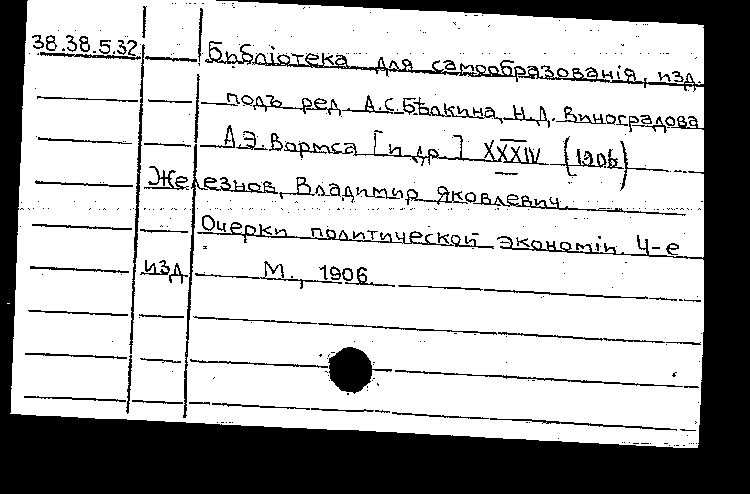 38.38.5.32 Библіотека для самообразованія, изд.
подъ ред. А.С.Бѣлкина, Н.Д. Виноградова
А.Э. Вормса [и др.] XXXIV (1906)
Железнов, Владимир Яковлевич.
Очерки политической экономіи. 4-е
изд М., 1906.